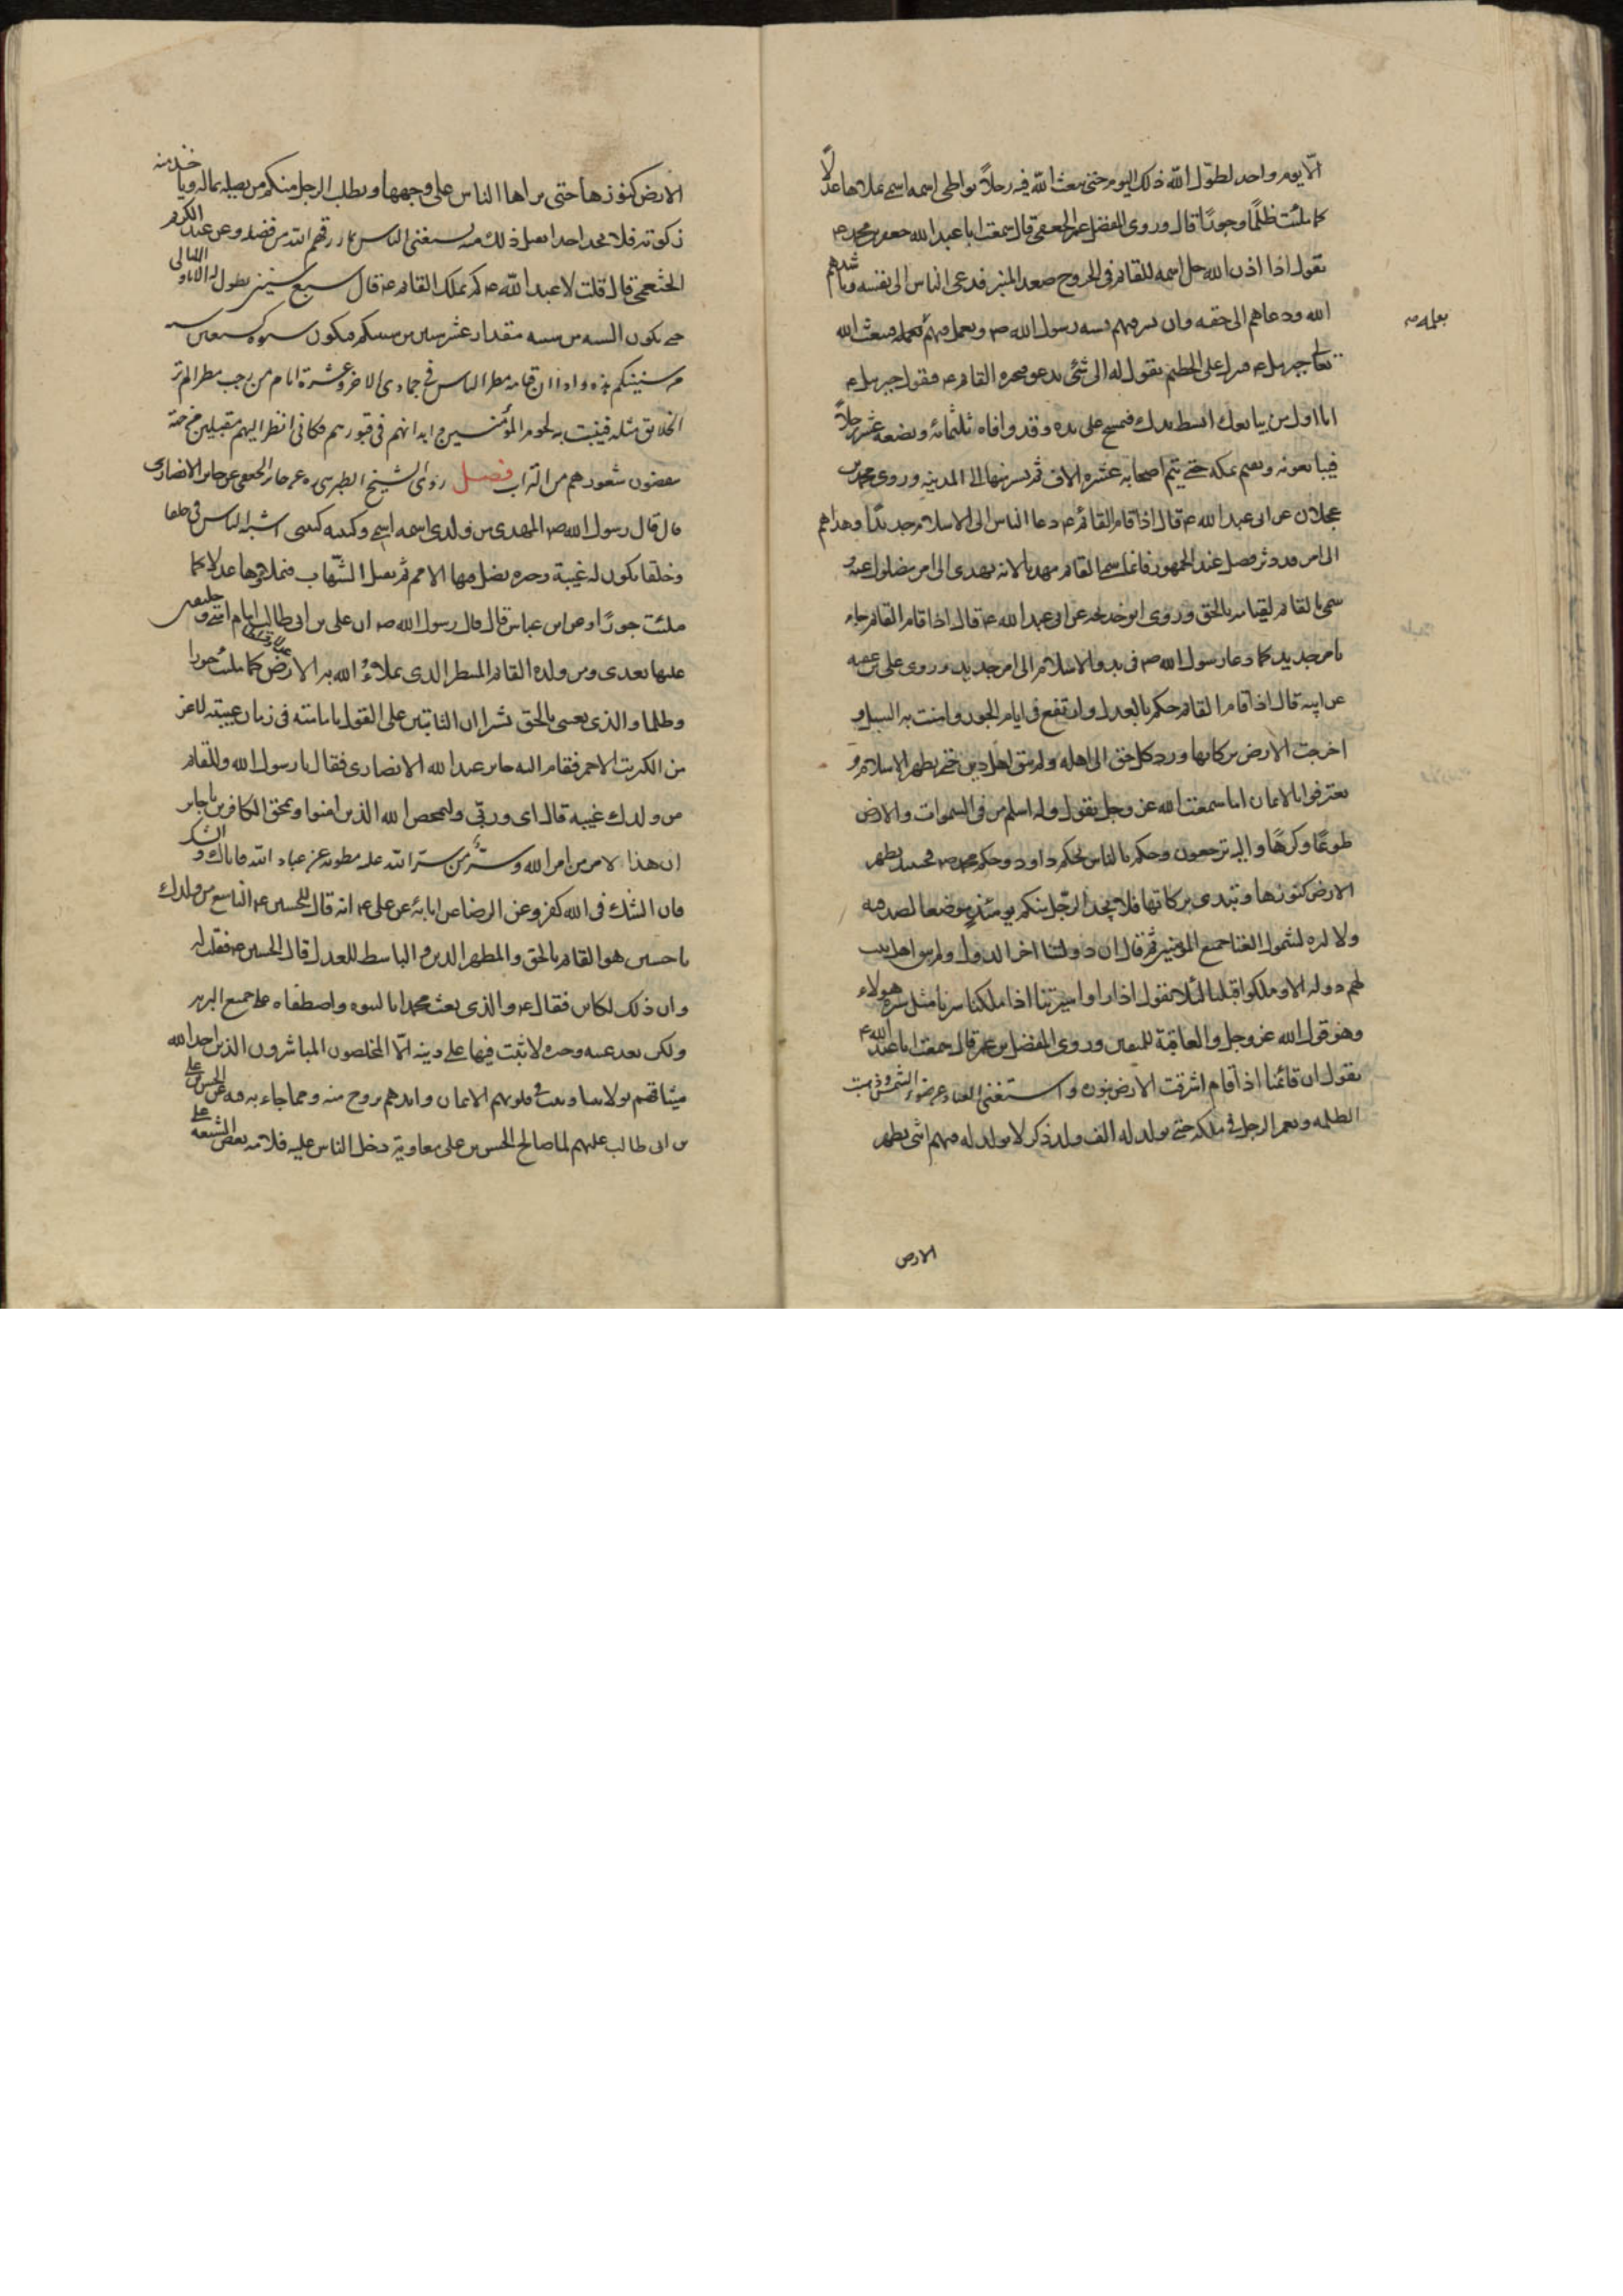 الّا يوم واحد لطوّل الله ذلك اليوم حتى يبعث الله فيه رجلاً يواطى اسمه اسمى يملاها عدلًا
كما ملئت ظلمًا وجورًا قال وروى المفضل بن عمر الجعفى قال سمعت ابا عبد الله جعفر بن محمد ع
يقول اذا اذن الله جل اسمه للقائم فى الخروج صعد المنبر فدعى الناس الى نفسه وناشدهم
الله ودعاهم الى حقه وان يسير فيهم بسنه رسول الله ص ويعمل فيهم بعمله فيبعث الله
بعمله ص
تعالى جبرئيل ع فينزل على الحطيم يقول له الى شئ يدعو فيخبره القائم ع فيقول جبرئيل ع
انا اول من يبايعك ابسط يدك فيمسح على يده وقد وافاه ثلثمائه وبضعه عشر رجلاً
فيبايعونه ويقيم بمكه حتى يتم اصحابه عشره الاف ثم يسير منها الى المدينه وروى محمد بن
عجلان عن ابى عبد الله ع قال اذا قام القائم ع دعا الناس الى الاسلام جديدًا وهداهم
الى امر قد دثر فضل عنه الجمهور فانما سمى القائم مهديا لانه يهدى الى امر مضلول عنه و
سمى بالقائم لقيامه بالحق وروى ابو خديجه عن ابى عبد الله ع قال اذا قام القائم جاء
بامر جديد كما دعا رسول الله ص فى بدو الاسلام الى امر جديد وروى على بن عقبه
عن ابيه قال اذا قام القائم حكم بالعدل وارتفع فى ايام الجور وامنت به السبل و
اخرجت الارض بركاتها ورد كل حق الى اهله ولم يبق اهل دين حتى يظهر الاسلام و
يعترفوا بالايمان اما سمعت الله عز وجل يقول وله اسلم من فى السموات والارض
طوعًا وكرهًا واليه ترجعون وحكم بالناس بحكم داود وحكم محمد ص فحينئذ يظهر
الارض كنوزها وتبدى بركاتها فلا يجد الرجل منكم يومئذٍ موضعا لصدقته
ولا لبره لشمول الغنا جميع المؤمنين ثم قال ان دولتنا اخر الدول ولم يبق اهل بيت
لهم دوله الا وملكوا قبلنا لئلا يقول اذا راوا سيرتنا اذا ملكنا سرنا مثل سيره هولاء
وهو قول الله عز وجل والعاقبة للمتقين وروى المفضل بن عمر قال سمعت ابا عبد الله ع
يقول ان قائمنا اذا قام اشرقت الارض بنوره واستغنى العباد عن ضوء الشمس وذهبت
الظلمه ويعمر الرجل فى ملكه حتى يولد له الف ولد ذكر لا يولد له فيهم انثى يظهر
الارض
الارض كنوزها حتى يراها الناس على وجهها ويطلب الرجل منكم من يصله بماله وياخذ منه
زكوته فلا يجد احدا يقبل ذلك منه يستغنى الناس بما رزقهم الله من فضله وعن عبد الكريم
الخثعمى قال قلت لابى عبد الله ع كم يملك القائم ع قال سبع سنين يطول له الايام والليالى
حتى يكون السنه من سنيه مقدار عشر سنين من سنيكم فيكون سنو ملكه سبعين سنه
من سنينكم هذه واذا ان قيامه مطر الناس فى جمادى الاخره وعشرة ايام من رجب مطر الم تر
الخلايق مثله فينبت به لحوم المؤمنين وابدانهم فى قبورهم فكانى انظر اليهم مقبلين من جهة
ينفضون شعورهم من التراب فصل روى الشيخ الطبرسى ره عن جابر الجعفى عن جابر الانصارى
قال قال رسول الله ص المهدى من ولدى اسمه اسمى وكنيته كنيتى اشبه الناس بى خلقا
وخلقا يكون له غيبة وحيره يضل فيها الامم ثم يقبل الشّهاب فيملاوها عدلا كما
ملئت جورًا وعن ابن عباس قال قال رسول الله ص ان على بن ابى طالب امام امتى وخليفتى
عليها بعدى ومن ولده القائم المنتظر الذى يملاءُ الله به الارض عدلا وقسطا كما ملئت جورا
وظلما والذى بعثنى بالحق بشيرا ان الثابتين على القول بامامته فى زمان غيبته لاعز
من الكبريت الاحمر فقام اليه جابر عبد الله الانصارى فقال يا رسول الله وللقائم
من ولدك غيبه قال اى وربّى وليمحص الله الذين امنوا ويمحق الكافرين يا جابر
ان هذا لامر من امر الله وسرٌّ من سر الله عله مطويه عن عباد الله فاياك والشك
فان الشك فى الله كفر وعن الرضا عن ابائه عن على ع انه قال للحسين ع التاسع من ولدك
يا حسين هو القائم بالحق والمظهر الدين والباسط للعدل قال الحسين ع فقلت له
وان ذلك لكائن فقال ع والذى بعث محمدا بالنبوه واصطفاه على جميع البريه
ولكن بعد غيبه وحيره لا يثبت فيها على دينه الّا المخلصون المباشرون الذين اخذ الله
ميثاقهم بولايتنا وكتب فى قلوبهم الايمان وايدهم بروح منه ومما جاء به فيه عن الحسن بن على
بن ابى طالب عليهم لما صالح الحسن بن على معاوية دخل الناس عليه فلامه بعض الشيعه على